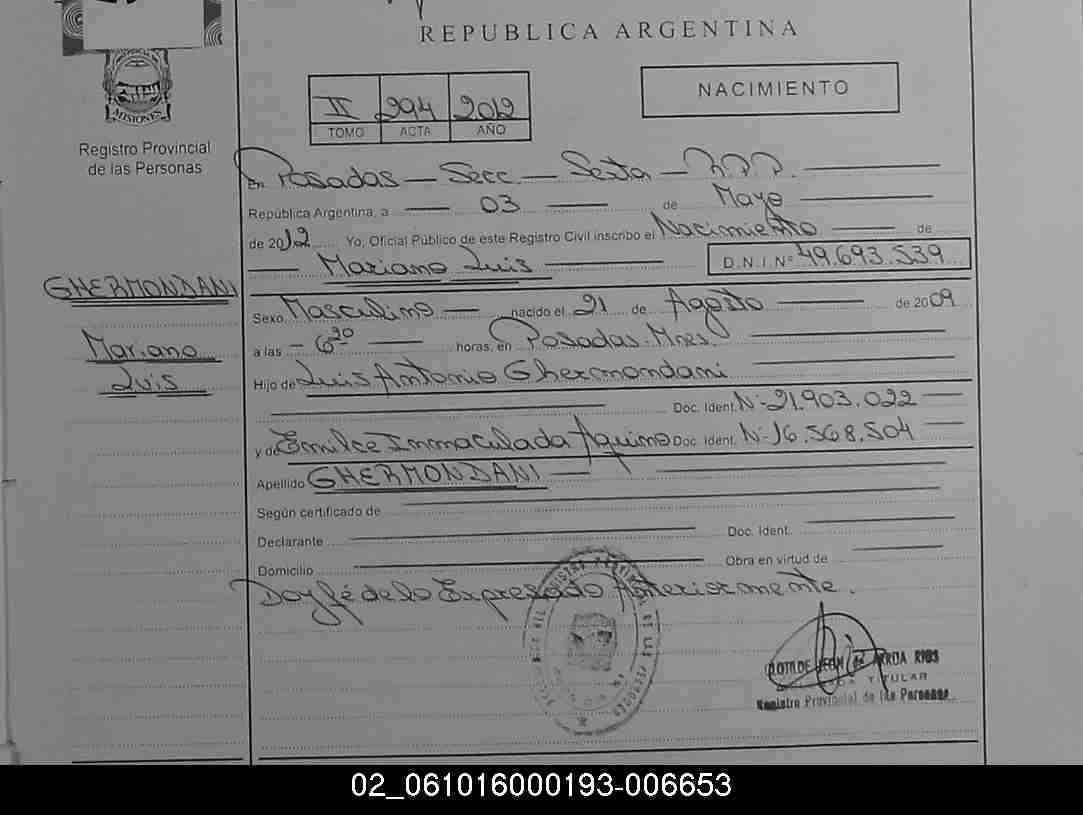 REPUBLICA ARGENTINA
MISIONES
Registro Provincial
de las Personas
II 294 2012
TOMO ACTA AÑO
NACIMIENTO
En Posadas — Secc. — Sexta — R.P.P.
República Argentina, a 03 de Mayo
de 2012 Yo, Oficial Público de este Registro Civil inscribo el Nacimiento de
Mariano Luis D.N.I.Nº 49.693.539
GHERMONDANI
Mariano
Luis
Sexo Masculino nacido el 21 de Agosto de 2009
a las - 6 30 horas, en Posadas. Mnes.
Hijo de Luis Antonio Ghermondani
Doc. Ident. Nº 21.903.022
y de Emilce Inmaculada Aquino Doc. Ident. Nº 16.568.504
Apellido GHERMONDANI
Según certificado de
Declarante Doc. Ident.
Domicilio Obra en virtud de
Doy fé de lo Expresado Anteriormente.
CLOTILDE RIOS
TITULAR
Registro Provincial de las Personas
02_061016000193-006653